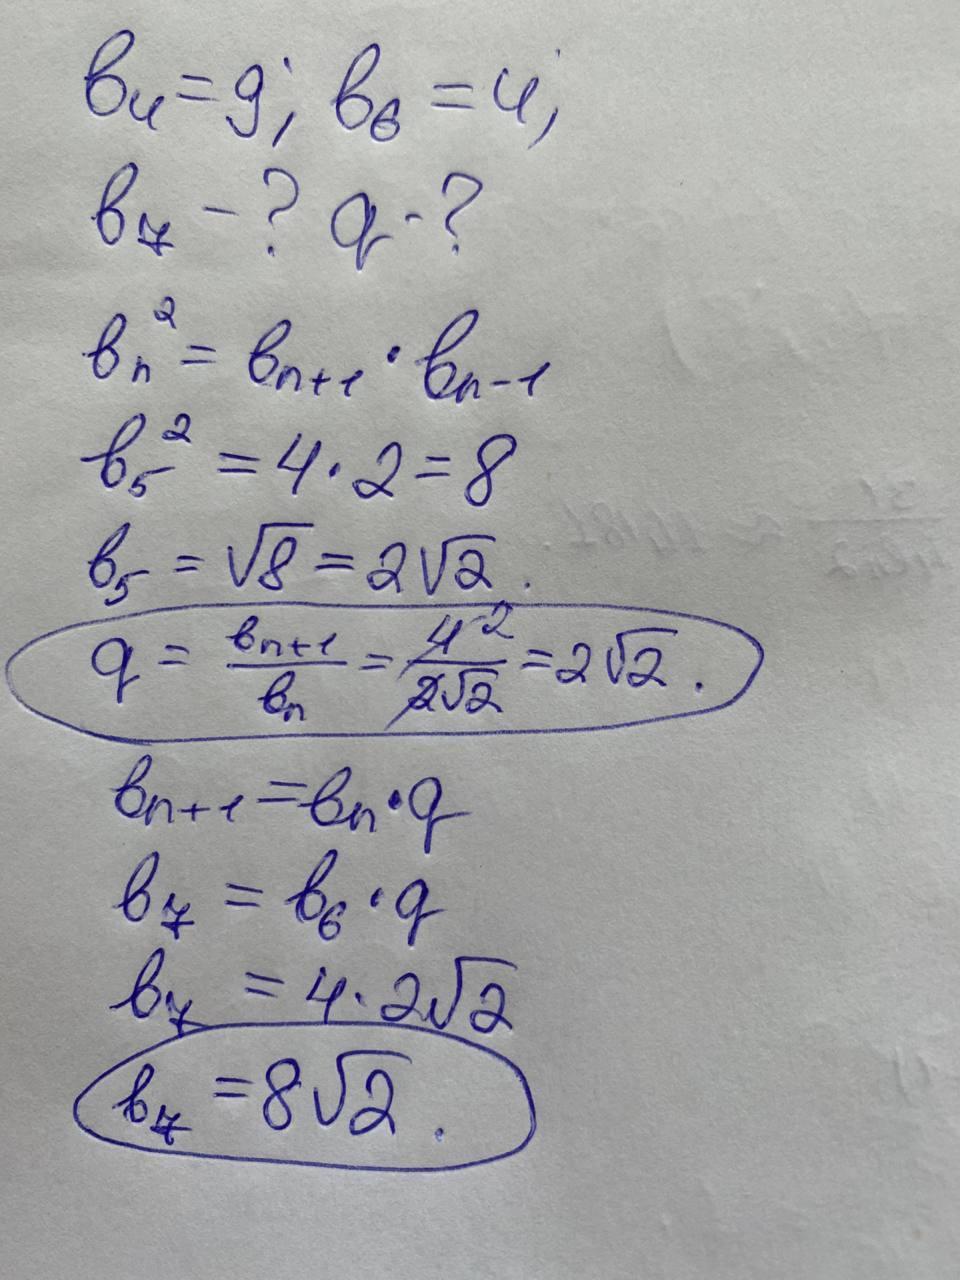 b₄ = 9; b₆ = 4;
b₇ - ? q - ?
bₙ² = bₙ₊₁ · bₙ₋₁
b₅² = 4 · 2 = 8
b₅ = √8 = 2√2.
q = bₙ₊₁/bₙ = 4²/2√2 = 2√2.
bₙ₊₁ = bₙ · q
b₇ = b₆ · q
b₇ = 4 · 2√2
b₇ = 8√2.